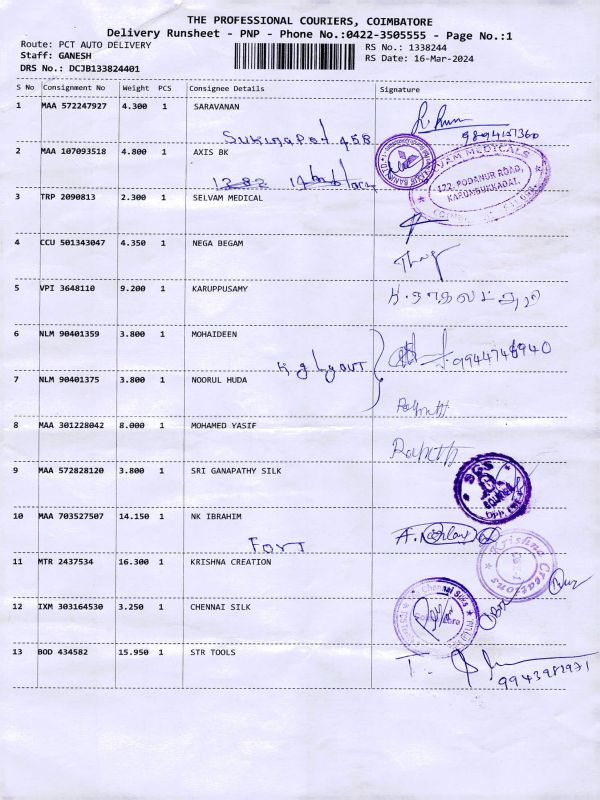 THE PROFESSIONAL COURIERS, COIMBATORE
Delivery Runsheet - PNP - Phone No.:0422-3505555 - Page No.:1
Route: PCT AUTO DELIVERY
RS No.: 1338244
Staff: GANESH
RS Date: 16-Mar-2024
DRS No.: DCJB133824401
S No Consignment No Weight PCS Consignee Details Signature
1 MAA 572247927 4.300 1 SARAVANAN
9894157360
2 MAA 107093518 4.800 1 AXIS BK
VAM MEDICALS
122, PODANUR ROAD,
KARUMBUKKADAI,
3 TRP 2090813 2.300 1 SELVAM MEDICAL
4 CCU 501343047 4.350 1 NEGA BEGAM
5 VPI 3648110 9.200 1 KARUPPUSAMY
6 NLM 90401359 3.800 1 MOHAIDEEN
9944748940
7 NLM 90401375 3.800 1 NOORUL HUDA
8 MAA 301228042 8.000 1 MOHAMED YASIF
9 MAA 572828120 3.800 1 SRI GANAPATHY SILK
SGS
10 MAA 703527507 14.150 1 NK IBRAHIM
Fort
11 MTR 2437534 16.300 1 KRISHNA CREATION
Krishna Creations
12 IXM 303164530 3.250 1 CHENNAI SILK
Chennai Silks
13 BOD 434582 15.950 1 STR TOOLS
9943981971